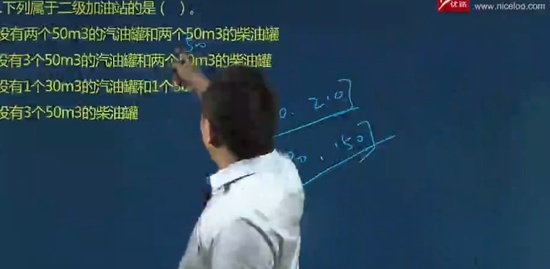 优路 www.niceloo.com
.下列属于二级加油站的是（ ）。
设有两个50m3的汽油罐和两个50m3的柴油罐
设有3个50m3的汽油罐和两个50m3的柴油罐
设有1个30m3的汽油罐和1个50
设有3个50m3的柴油罐
210]
150]